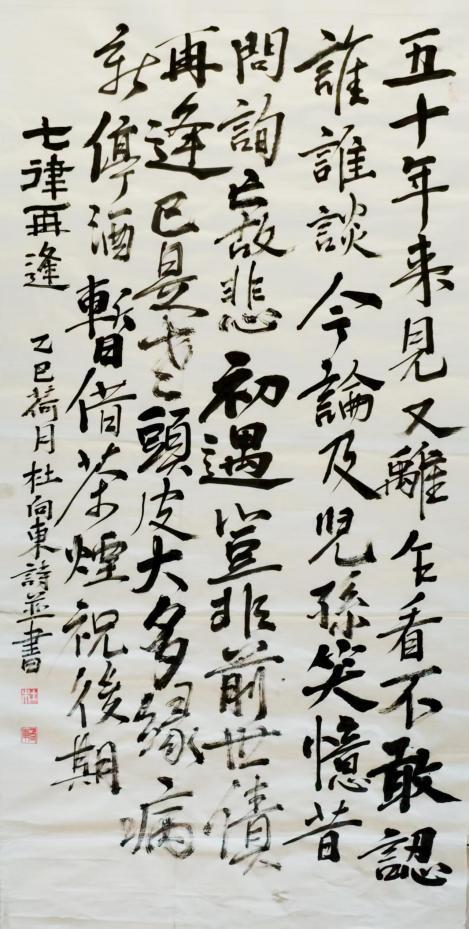 五十年来見又離乍看不敢認
誰誰談今論及児孫笑憶昔
問詢亡故悲初遇豈非前世債
再逢已是老頭皮大多緣病
新停酒暫借茶煙祝後期
七律再逢 乙巳荷月杜向東詩並書